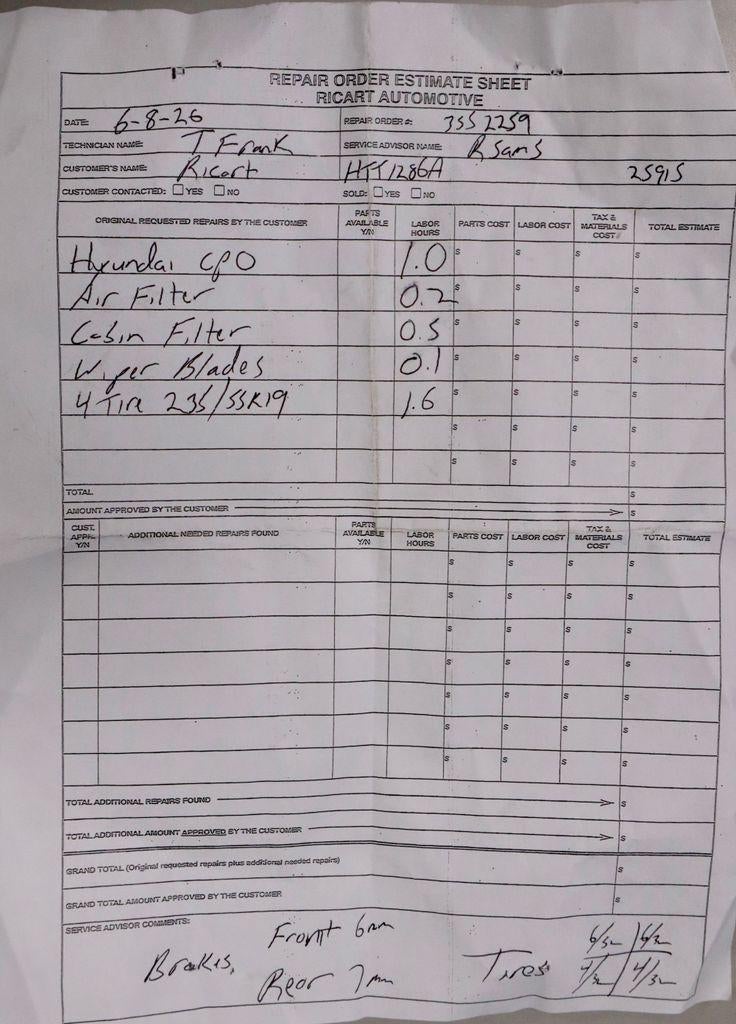 REPAIR ORDER ESTIMATE SHEET
RICART AUTOMOTIVE
DATE: 6-8-26 REPAIR ORDER #: 3552259
TECHNICIAN NAME: T Frank SERVICE ADVISOR NAME: R Sams
CUSTOMER'S NAME: Ricart HTT1286A 25915
CUSTOMER CONTACTED: YES NO SOLD: YES NO
ORIGINAL REQUESTED REPAIRS BY THE CUSTOMER PARTS AVAILABLE Y/N LABOR HOURS PARTS COST LABOR COST TAX & MATERIALS COST TOTAL ESTIMATE
Hyundai CPO 1.0 $ $ $ $
Air Filter 0.2 $ $ $ $
Cabin Filter 0.5 $ $ $ $
Wiper Blades 0.1 $ $ $ $
4 Tire 235/55R19 1.6 $ $ $ $
$ $ $ $
$ $ $ $
TOTAL $
AMOUNT APPROVED BY THE CUSTOMER $
CUST. APPR. Y/N ADDITIONAL NEEDED REPAIRS FOUND PARTS AVAILABLE Y/N LABOR HOURS PARTS COST LABOR COST TAX & MATERIALS COST TOTAL ESTIMATE
$ $ $ $
$ $ $ $
$ $ $ $
$ $ $ $
$ $ $ $
$ $ $ $
$ $ $ $
TOTAL ADDITIONAL REPAIRS FOUND $
TOTAL ADDITIONAL AMOUNT APPROVED BY THE CUSTOMER $
GRAND TOTAL (Original requested repairs plus additional needed repairs) $
GRAND TOTAL AMOUNT APPROVED BY THE CUSTOMER $
SERVICE ADVISOR COMMENTS:
Front 6mm 6/32 6/32
Brakes, Tires
Rear 7mm 4/32 4/32